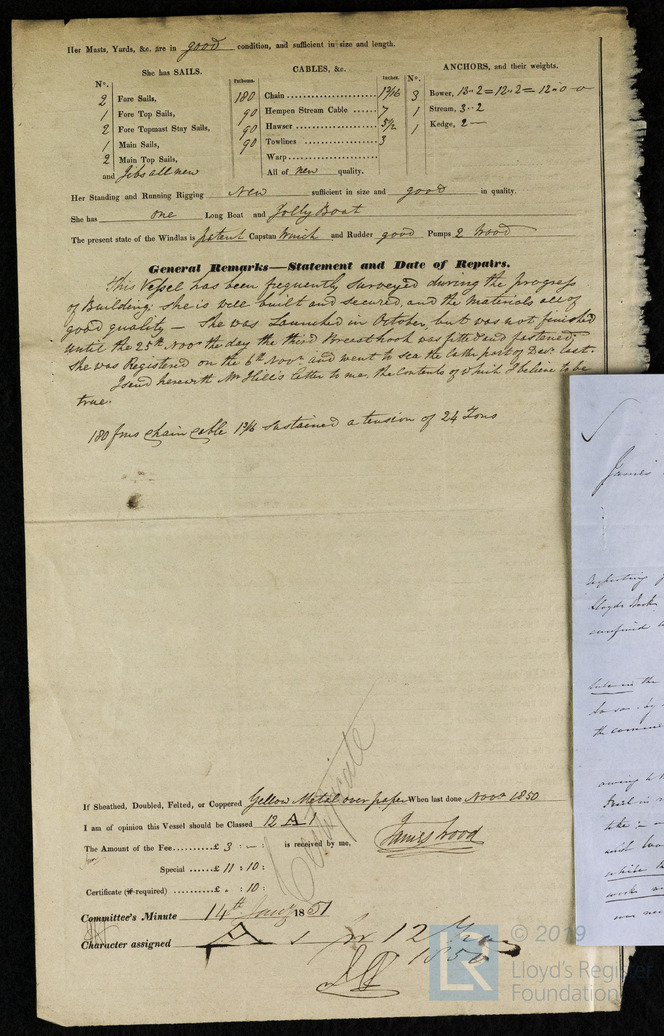 Her Masts, Yards, &c. are in good condition, and sufficient in size and length.
She has SAILS.
CABLES, &c.
ANCHORS, and their weights.
N°.
Fathoms.
Inches.
N°.
2 Fore Sails,
180 Chain 1 3/16
3 Bower, 13..2=12..2=12..0..0
1 Fore Top Sails,
90 Hempen Stream Cable 7
1 Stream, 3..2
2 Fore Topmast Stay Sails,
90 Hawser 5/2
1 Kedge, 2 —
1 Main Sails,
90 Towlines 3
2 Main Top Sails,
Warp
and Jibs all new
All of new quality.
Her Standing and Running Rigging New sufficient in size and good in quality.
She has one Long Boat and Jolly Boat
The present state of the Windlas is patent Capstan Winch and Rudder good Pumps 2 Wood
General Remarks—Statement and Date of Repairs.
This Vessel has been frequently surveyed during the progress
of Building; she is well built and secured, and the materials all of
good quality — She was Launched in October, but was not finished
until the 25th Novr the day the third Breasthook was fitted and fastened,
She was Registered on the 6th Novr and went to sea the latter part of Decr last.
I send herewith Mr Hill's letter to me, the contents of which I believe to be
true.
180 fms chain cable 1 3/16 sustained a tension of 24 Tons
Certificate
If Sheathed, Doubled, Felted, or Coppered Yellow Metal over paper When last done Novr 1850
I am of opinion this Vessel should be Classed 12 A 1
The Amount of the Fee £ 3 : — : is received by me,
James Wood
Special £ 11 : 10 :
Certificate (if required) £ " : 10 :
Committee's Minute 14th Jany 1851
Character assigned A 1 for 12 Yrs
1850
James
Lloyds Book
confined
the
by
the
owing to
take
and
while
work
was
© 2019
LR
Lloyd's Register
Foundation